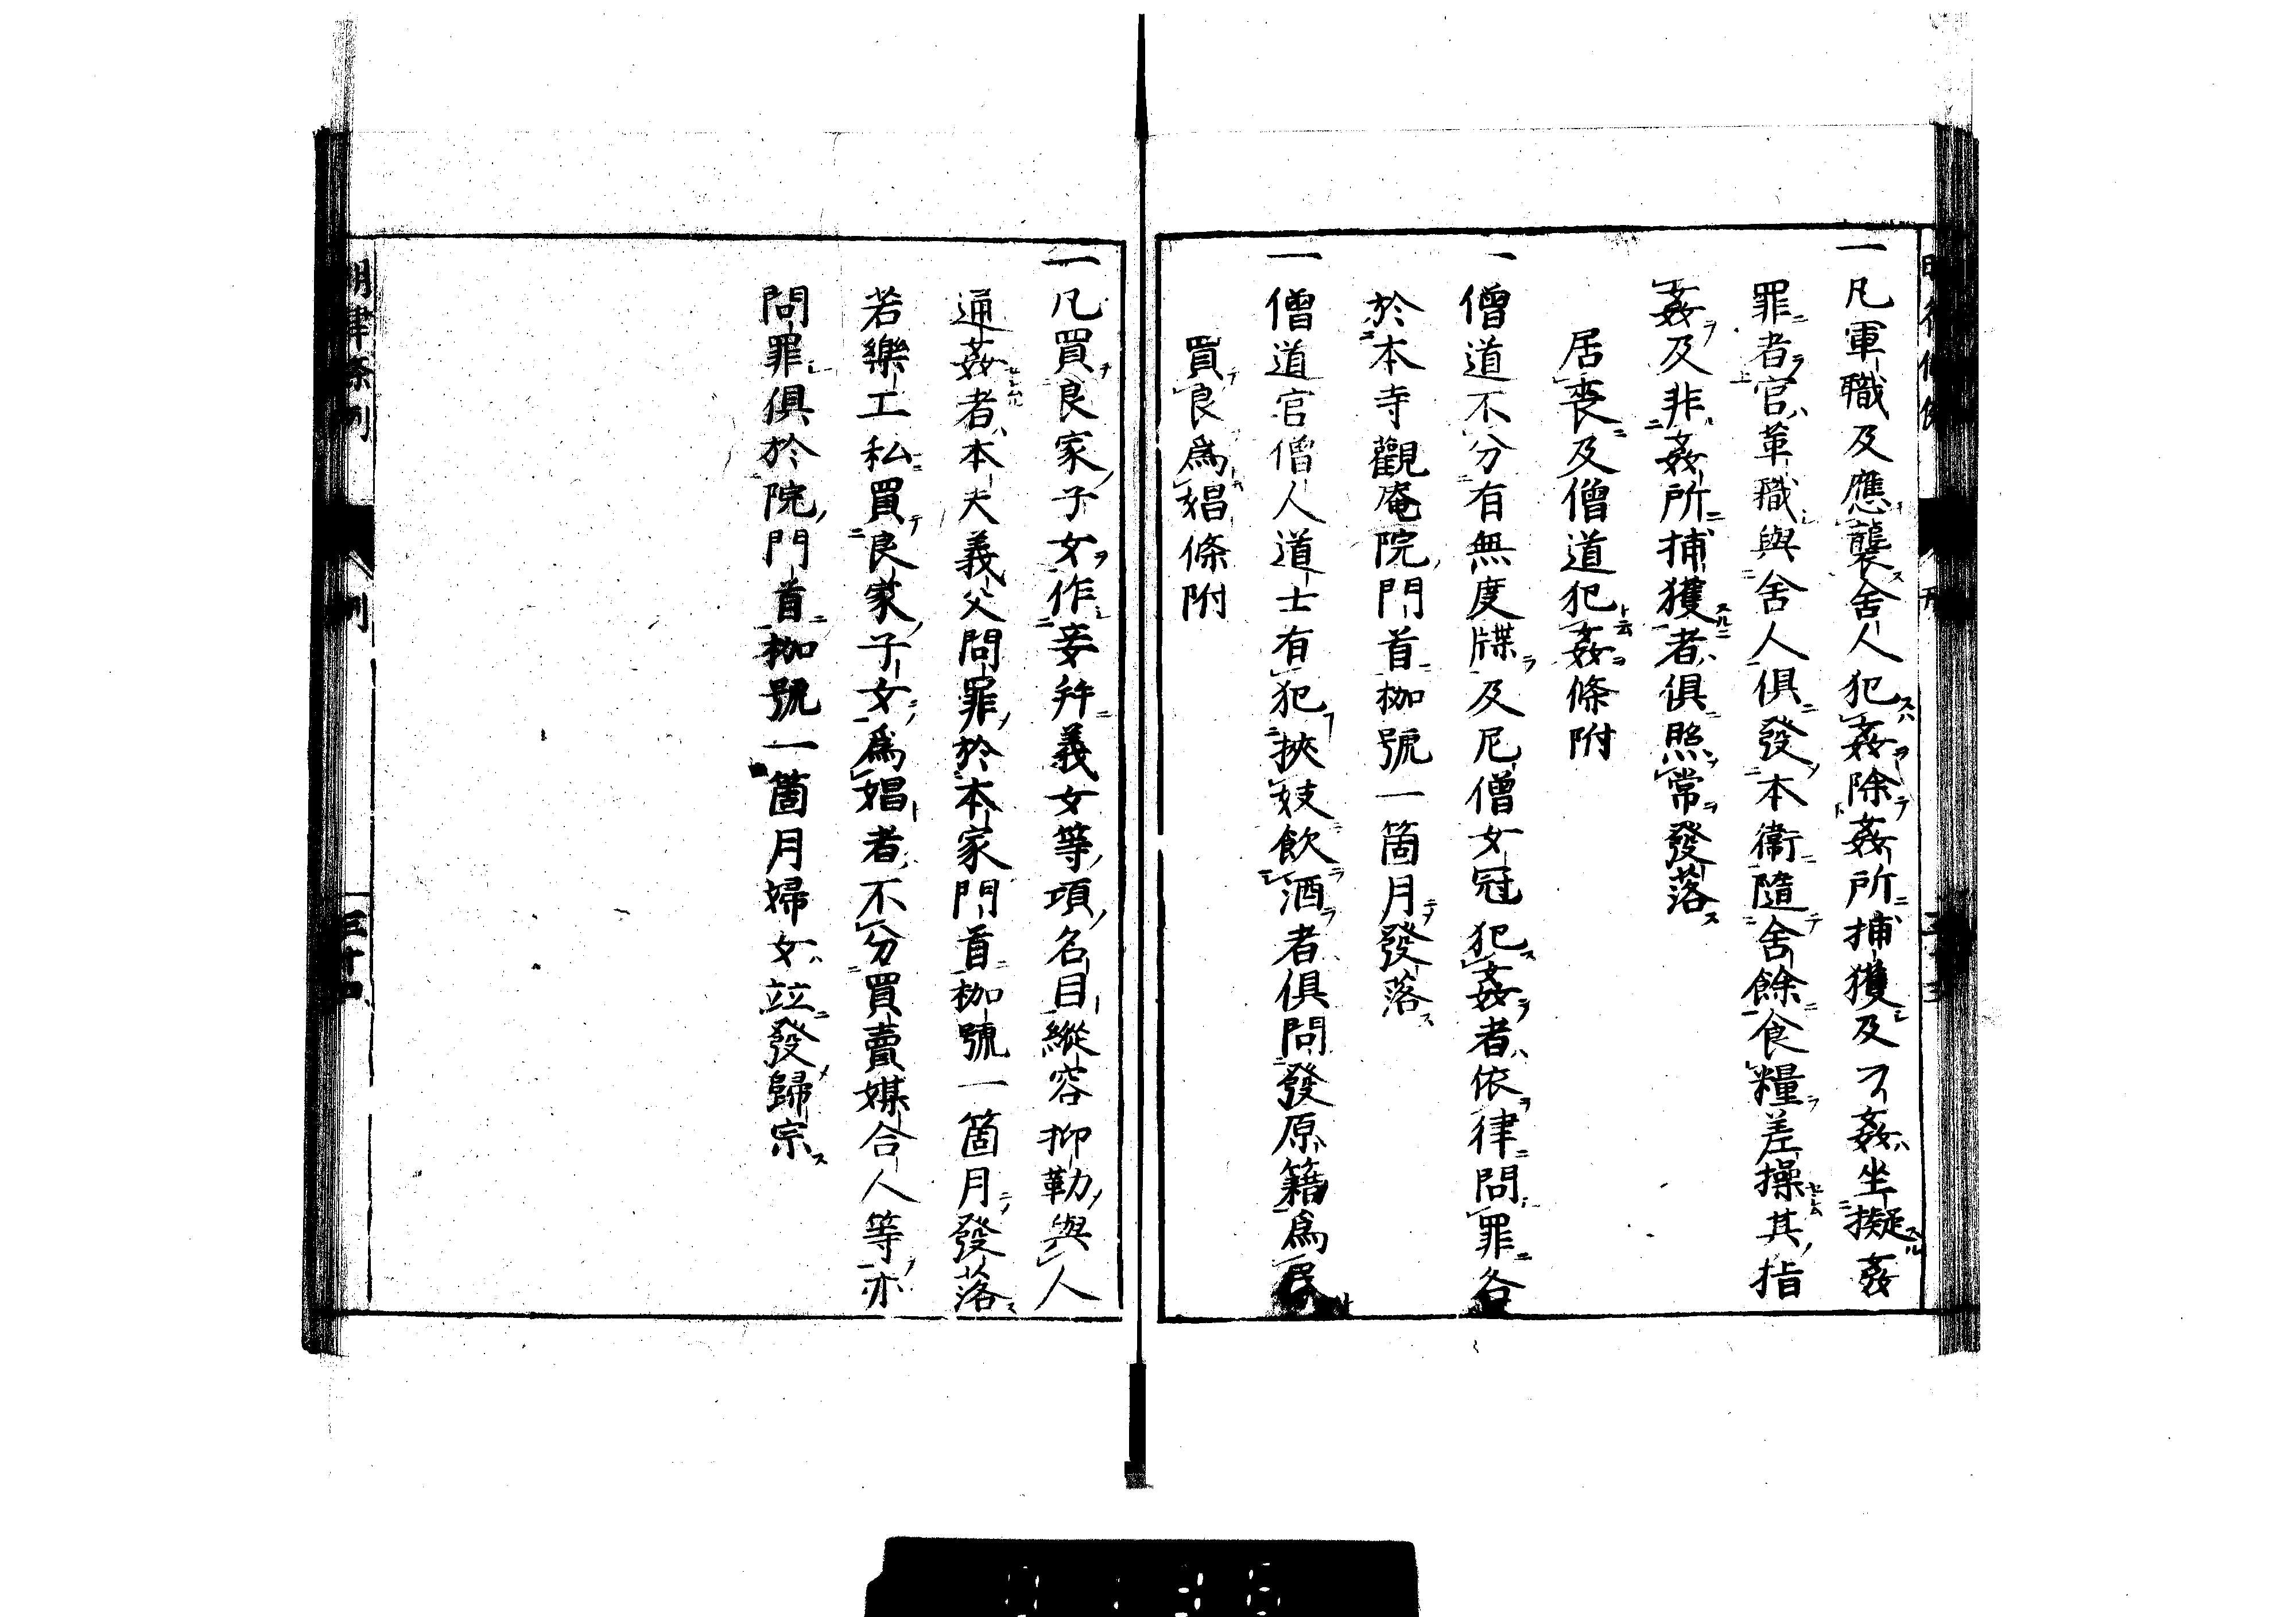 一凡軍職及應襲舍人犯姦除姦所捕獲及刁姦坐擬姦
罪者官革職與舍人俱發本衛隨舍餘食糧差操其指
姦及非姦所捕獲者俱照常發落
居喪及僧道犯姦條附
一僧道不分有無度牒及尼僧女冠犯姦者依律問罪各
於本寺觀庵院門首枷號一箇月發落
一僧道官僧人道士有犯挾妓飲酒者俱問發原籍爲民
買良爲娼條附
一凡買良家子女作妾幷義女等項名目縱容抑勒與人
通姦者本夫義父問罪於本家門首枷號一箇月發落
若樂工私買良家子女爲娼者不分買賣媒合人等亦
問罪俱於院門首枷號一箇月婦女竝發歸宗
明律条例